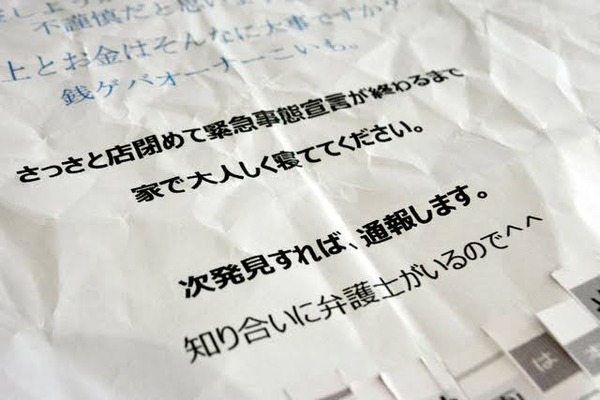 不謹慎だと思い
上とお金はそんなに大事ですか？
銭ゲバオーナーこいも。
さっさと店閉めて緊急事態宣言が終わるまで
家で大人しく寝ててください。
次発見すれば、通報します。
知り合いに弁護士がいるのでへへ
は